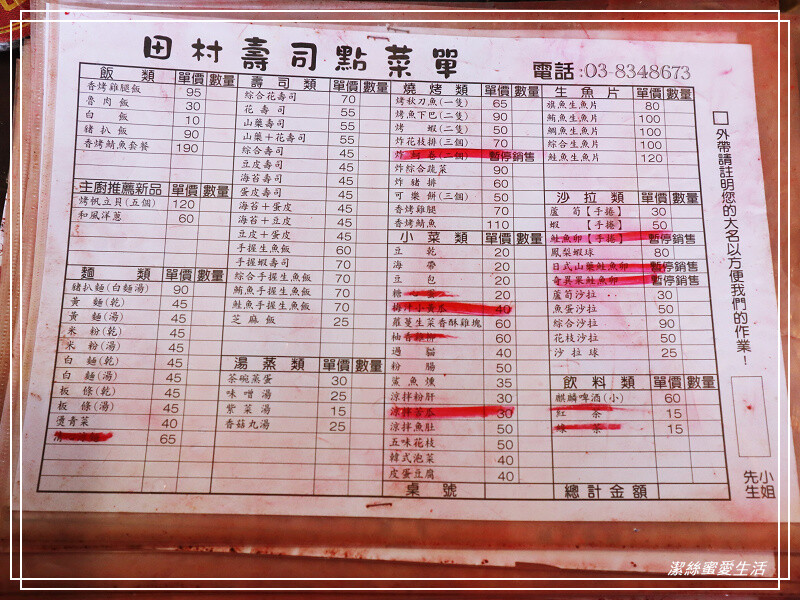 田村壽司點菜單
電話:03-8348673
飯類 單價 數量
香烤雞腿飯 95
魯肉飯 30
白飯 10
豬扒飯 90
香烤鯖魚套餐 190
主廚推薦新品 單價 數量
烤帆立貝(五個) 120
和風洋蔥 60
麵類 單價 數量
豬扒麵(白麵湯) 90
黃麵(乾) 45
黃麵(湯) 45
米粉(乾) 45
米粉(湯) 45
白麵(乾) 45
白麵(湯) 45
板條(乾) 45
板條(湯) 45
燙青菜 40
65
壽司類 單價 數量
綜合花壽司 70
花壽司 55
山藥壽司 55
山藥+花壽司 55
綜合壽司 45
豆皮壽司 45
海苔壽司 45
蛋皮壽司 45
海苔+蛋皮 45
海苔+豆皮 45
豆皮+蛋皮 45
手握生魚飯 60
手握蝦壽司 70
綜合手握生魚飯 70
鮪魚手握生魚飯 70
鮭魚手握生魚飯 70
芝麻飯 25
湯蒸類 單價 數量
茶碗蒸蛋 30
味噌湯 25
紫菜湯 15
香菇丸湯 25
燒烤類 單價 數量
烤秋刀魚(一隻) 65
烤魚下巴(二隻) 90
烤蝦(二隻) 50
炸花枝排(三個) 70
炸蚵卷(二個) 暫停銷售
炸綜合蔬菜 90
炸豬排 60
可樂餅(三個) 50
香烤雞腿 70
香烤鯖魚 110
小菜類 單價 數量
豆乾 20
海帶 20
豆包 20
糖 20
梅汁小黃瓜 40
蘿蔓生菜香酥雞塊 60
柚香雞柳 60
過貓 40
粉腸 50
鯊魚燻 35
涼拌粉肝 30
涼拌苦瓜 30
涼拌魚肚 50
五味花枝 50
韓式泡菜 40
皮蛋豆腐 40
桌號
生魚片 單價 數量
旗魚生魚片 80
鮪魚生魚片 100
鯛魚生魚片 100
綜合生魚片 100
鮭魚生魚片 120
沙拉類 單價 數量
蘆筍【手捲】 30
蝦【手捲】 50
鮭魚卵【手捲】 暫停銷售
鳳梨蝦球 80
日式山藥鮭魚卵 暫停銷售
奇異果鮭魚卵 暫停銷售
蘆筍沙拉 30
魚蛋沙拉 50
綜合沙拉 90
花枝沙拉 50
沙拉球 25
飲料類 單價 數量
麒麟啤酒(小) 60
紅茶 15
綠茶 15
總計金額
□外帶請註明您的大名以方便我們的作業!
小姐
先生
潔絲蜜愛生活